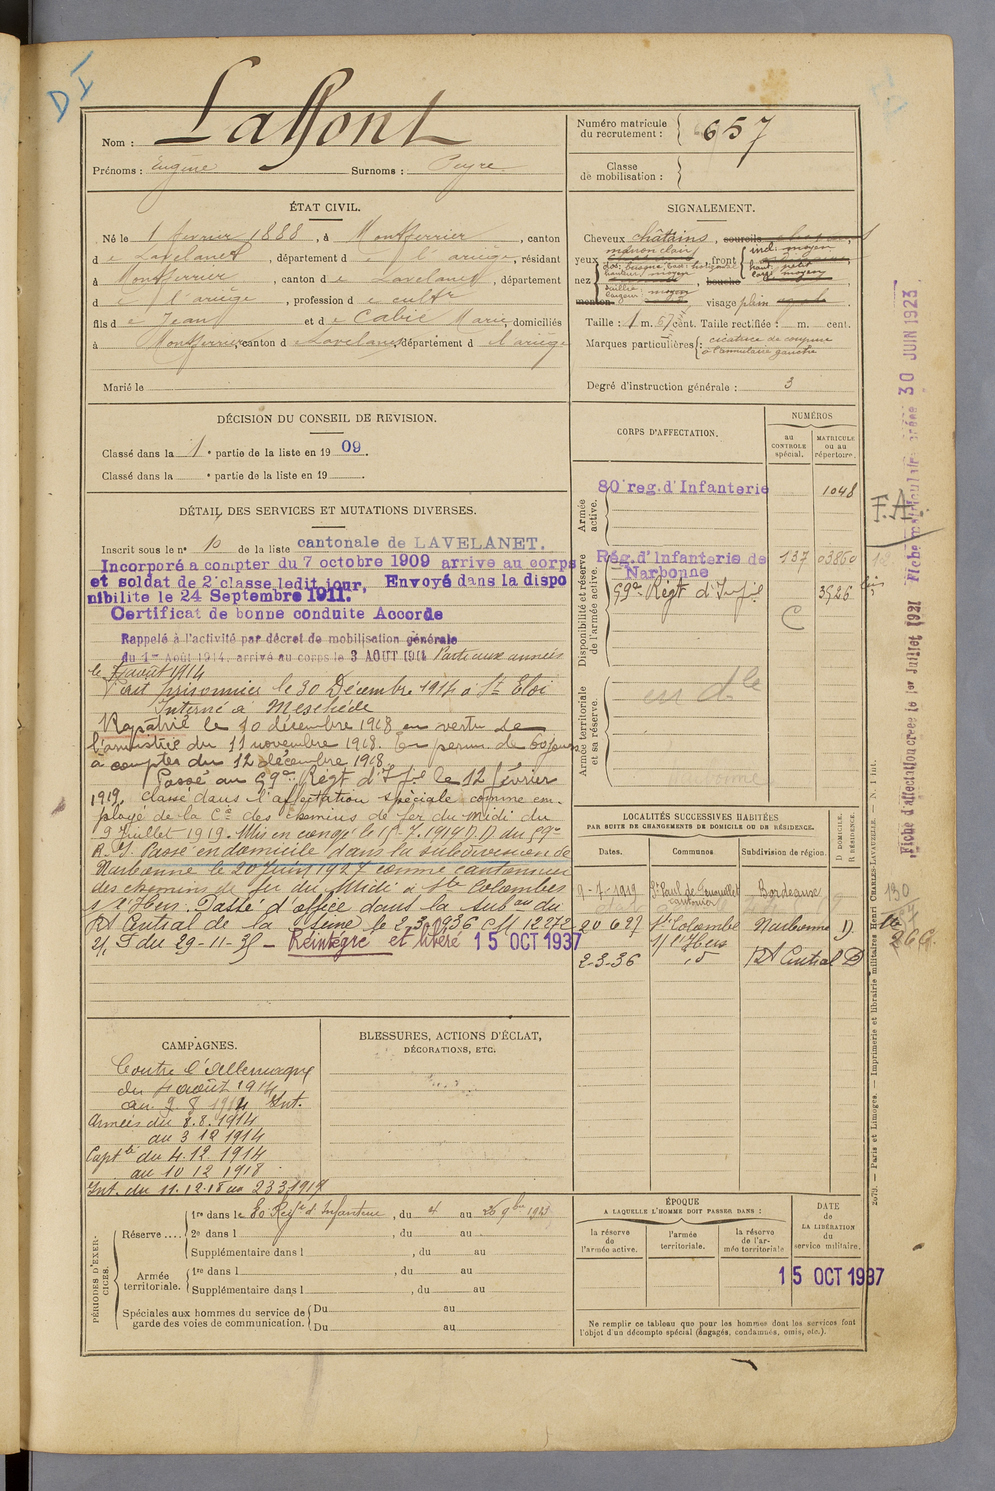 D I
Nom : Laffont
Prénoms : Eugène Surnoms : Peyre
Numéro matricule du recrutement : 657
Classe de mobilisation :
ÉTAT CIVIL.
Né le 1 février 1888, à Montferrier, canton
d e Lavelanet, département d e l'ariège, résidant
à Montferrier, canton d e Lavelanet, département
d e l'ariège, profession d e cultr
fils d e Jean et d e Cabié Marie, domiciliés
à Montferrier canton d e Lavelanet département d e l'ariège
Marié le
SIGNALEMENT.
Cheveux châtains, sourcils
yeux marron clair, front incl: moyen haut: petit larg: moyen
nez dos: busqué, base: horizontal hauteur: moyen saillie largeur: moyen, bouche
menton visage plein
Taille : 1 m. 67 cent. Taille rectifiée : m. cent.
Marques particulières : cicatrice de coupure à l'annulaire gauche
Degré d'instruction générale : 3
DÉCISION DU CONSEIL DE REVISION.
Classé dans la 1e partie de la liste en 1909.
Classé dans la e partie de la liste en 19
DÉTAIL DES SERVICES ET MUTATIONS DIVERSES.
Inscrit sous le n° 10 de la liste cantonale de LAVELANET.
Incorporé a compter du 7 octobre 1909 arrive au corps
et soldat de 2e classe ledit jour, Envoyé dans la dispo
nibilite le 24 Septembre 1911.
Certificat de bonne conduite Accorde
Rappelé à l'activité par décret de mobilisation générale
du 1er Août 1914, arrivé au corps le 3 AOUT 1914 Parti aux armées
le 7 août 1914
Fait prisonnier le 30 Décembre 1914 à St Eloi
Interné à Meschede
Rapatrié le 10 décembre 1918 en vertu de
l'amistice du 11 novembre 1918. En perm. de 60 jours
à compter du 12 décembre 1918
Passé au 99e Régt d'Inf le 12 février
1919. classé dans l'affectation spéciale comme em-
ployé de la Cie des chemins de fer du midi du
9 Juillet 1919. Mis en congé le 15-7.1919 D.D. du 99e
R.I. Passé en domicile dans la subdivision de
Narbonne le 20 Juin 1927 comme cantonnier
des chemins de fer du Midi à Ste Colombes
s/ l'Hers. Passé d'office dans la subdon du
Rt Central de la Seine le 2.3.1936 CM 12272
2/1 S du 29-11-35 — Réintégré et libéré 15 OCT 1937
CORPS D'AFFECTATION.
NUMÉROS
au CONTROLE spécial.
MATRICULE ou au répertoire.
Armée active.
80e reg. d'Infanterie 1048
Disponibilité et réserve de l'armée active.
Rég. d'Infanterie de Narbonne 137 03860
99e Régt d'Inf 3526 bis
C
Armée territoriale et sa réserve.
en dle
Narbonne
LOCALITÉS SUCCESSIVES HABITÉES
PAR SUITE DE CHANGEMENTS DE DOMICILE OU DE RÉSIDENCE.
Dates. Communes. Subdivision de région. D DOMICILE. R RÉSIDENCE.
9-7-1919 St Paul de Fenouillet cantonier Bordeaux
20 6 27 Ste Colombe s/ l'Hers Narbonne D
2-3-36 id Rt Central D
CAMPAGNES.
Contre l'Allemagne
du 4 août 1914
au 7 8 1914 Int.
Armées du 8.8.1914
au 3 12 1914
Capté du 4.12.1914
au 10 12 1918
Int. du 11.12.18 au 23 3 1919
BLESSURES, ACTIONS D'ÉCLAT,
DÉCORATIONS, ETC.
PÉRIODES D'EXERCICES.
Réserve .... 1re dans le 80 Regt d'Infanterie, du 4 au 26 9bre 1913
2e dans l , du au
Supplémentaire dans l , du au
Armée territoriale. 1re dans l , du au
Supplémentaire dans l , du au
Spéciales aux hommes du service de garde des voies de communication. Du au
Du au
ÉPOQUE
A LAQUELLE L'HOMME DOIT PASSER DANS :
la réserve de l'armée active.
l'armée territoriale.
la réserve de l'armée territoriale
DATE de LA LIBÉRATION du service militaire.
15 OCT 1937
Ne remplir ce tableau que pour les hommes dont les services font
l'objet d'un décompte spécial (engagés, condamnés, omis, etc.).
F.A.
Fiche d'affectation créée le 1er Juillet 1921 Fiche matriculaire créée 30 JUIN 1923
2079. — Paris et Limoges. — Imprimerie et librairie militaires Henri CHARLES-LAVAUZELLE. — N. 1 Int.